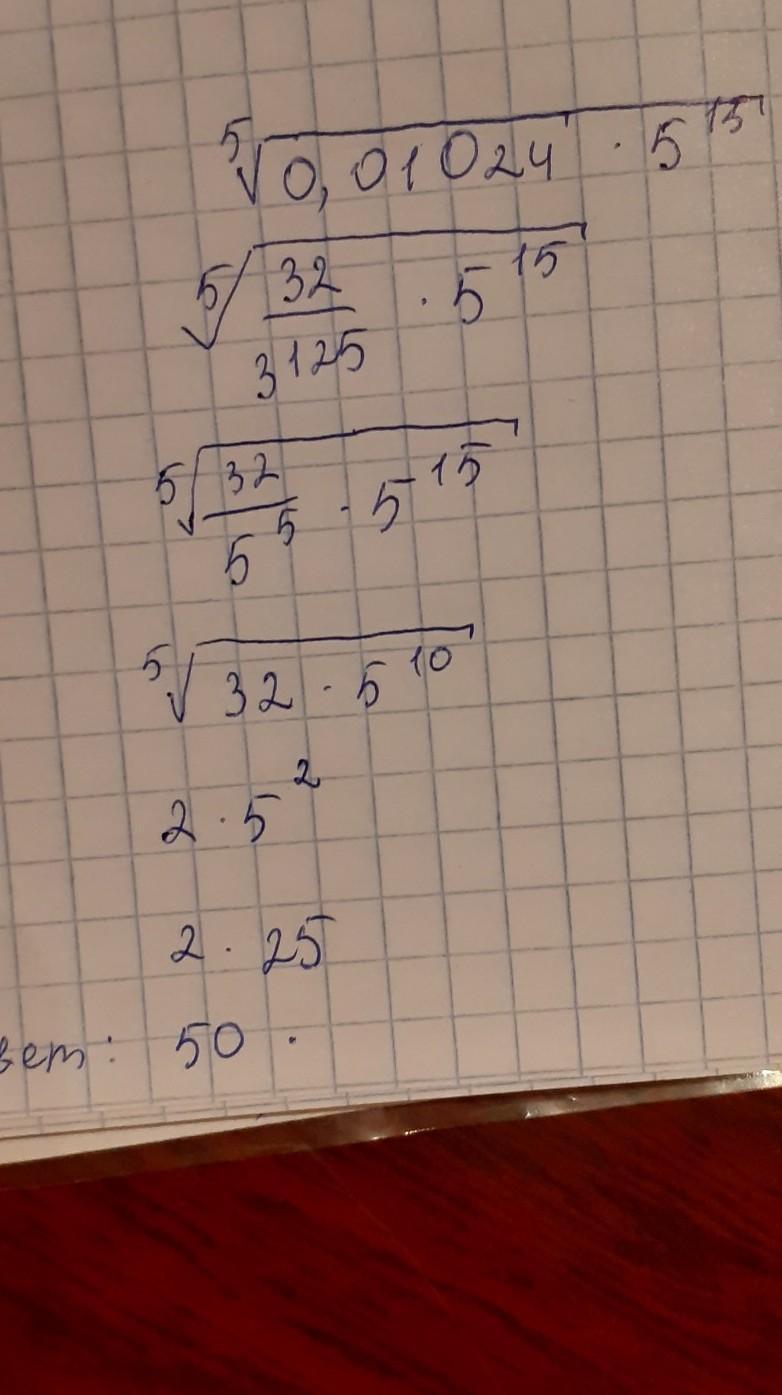 ⁵√0,01024 · 5¹⁵
⁵√32/3125 · 5¹⁵
⁵√32/5⁵ · 5¹⁵
⁵√32 · 5¹⁰
2 · 5²
2 · 25
вет: 50 .